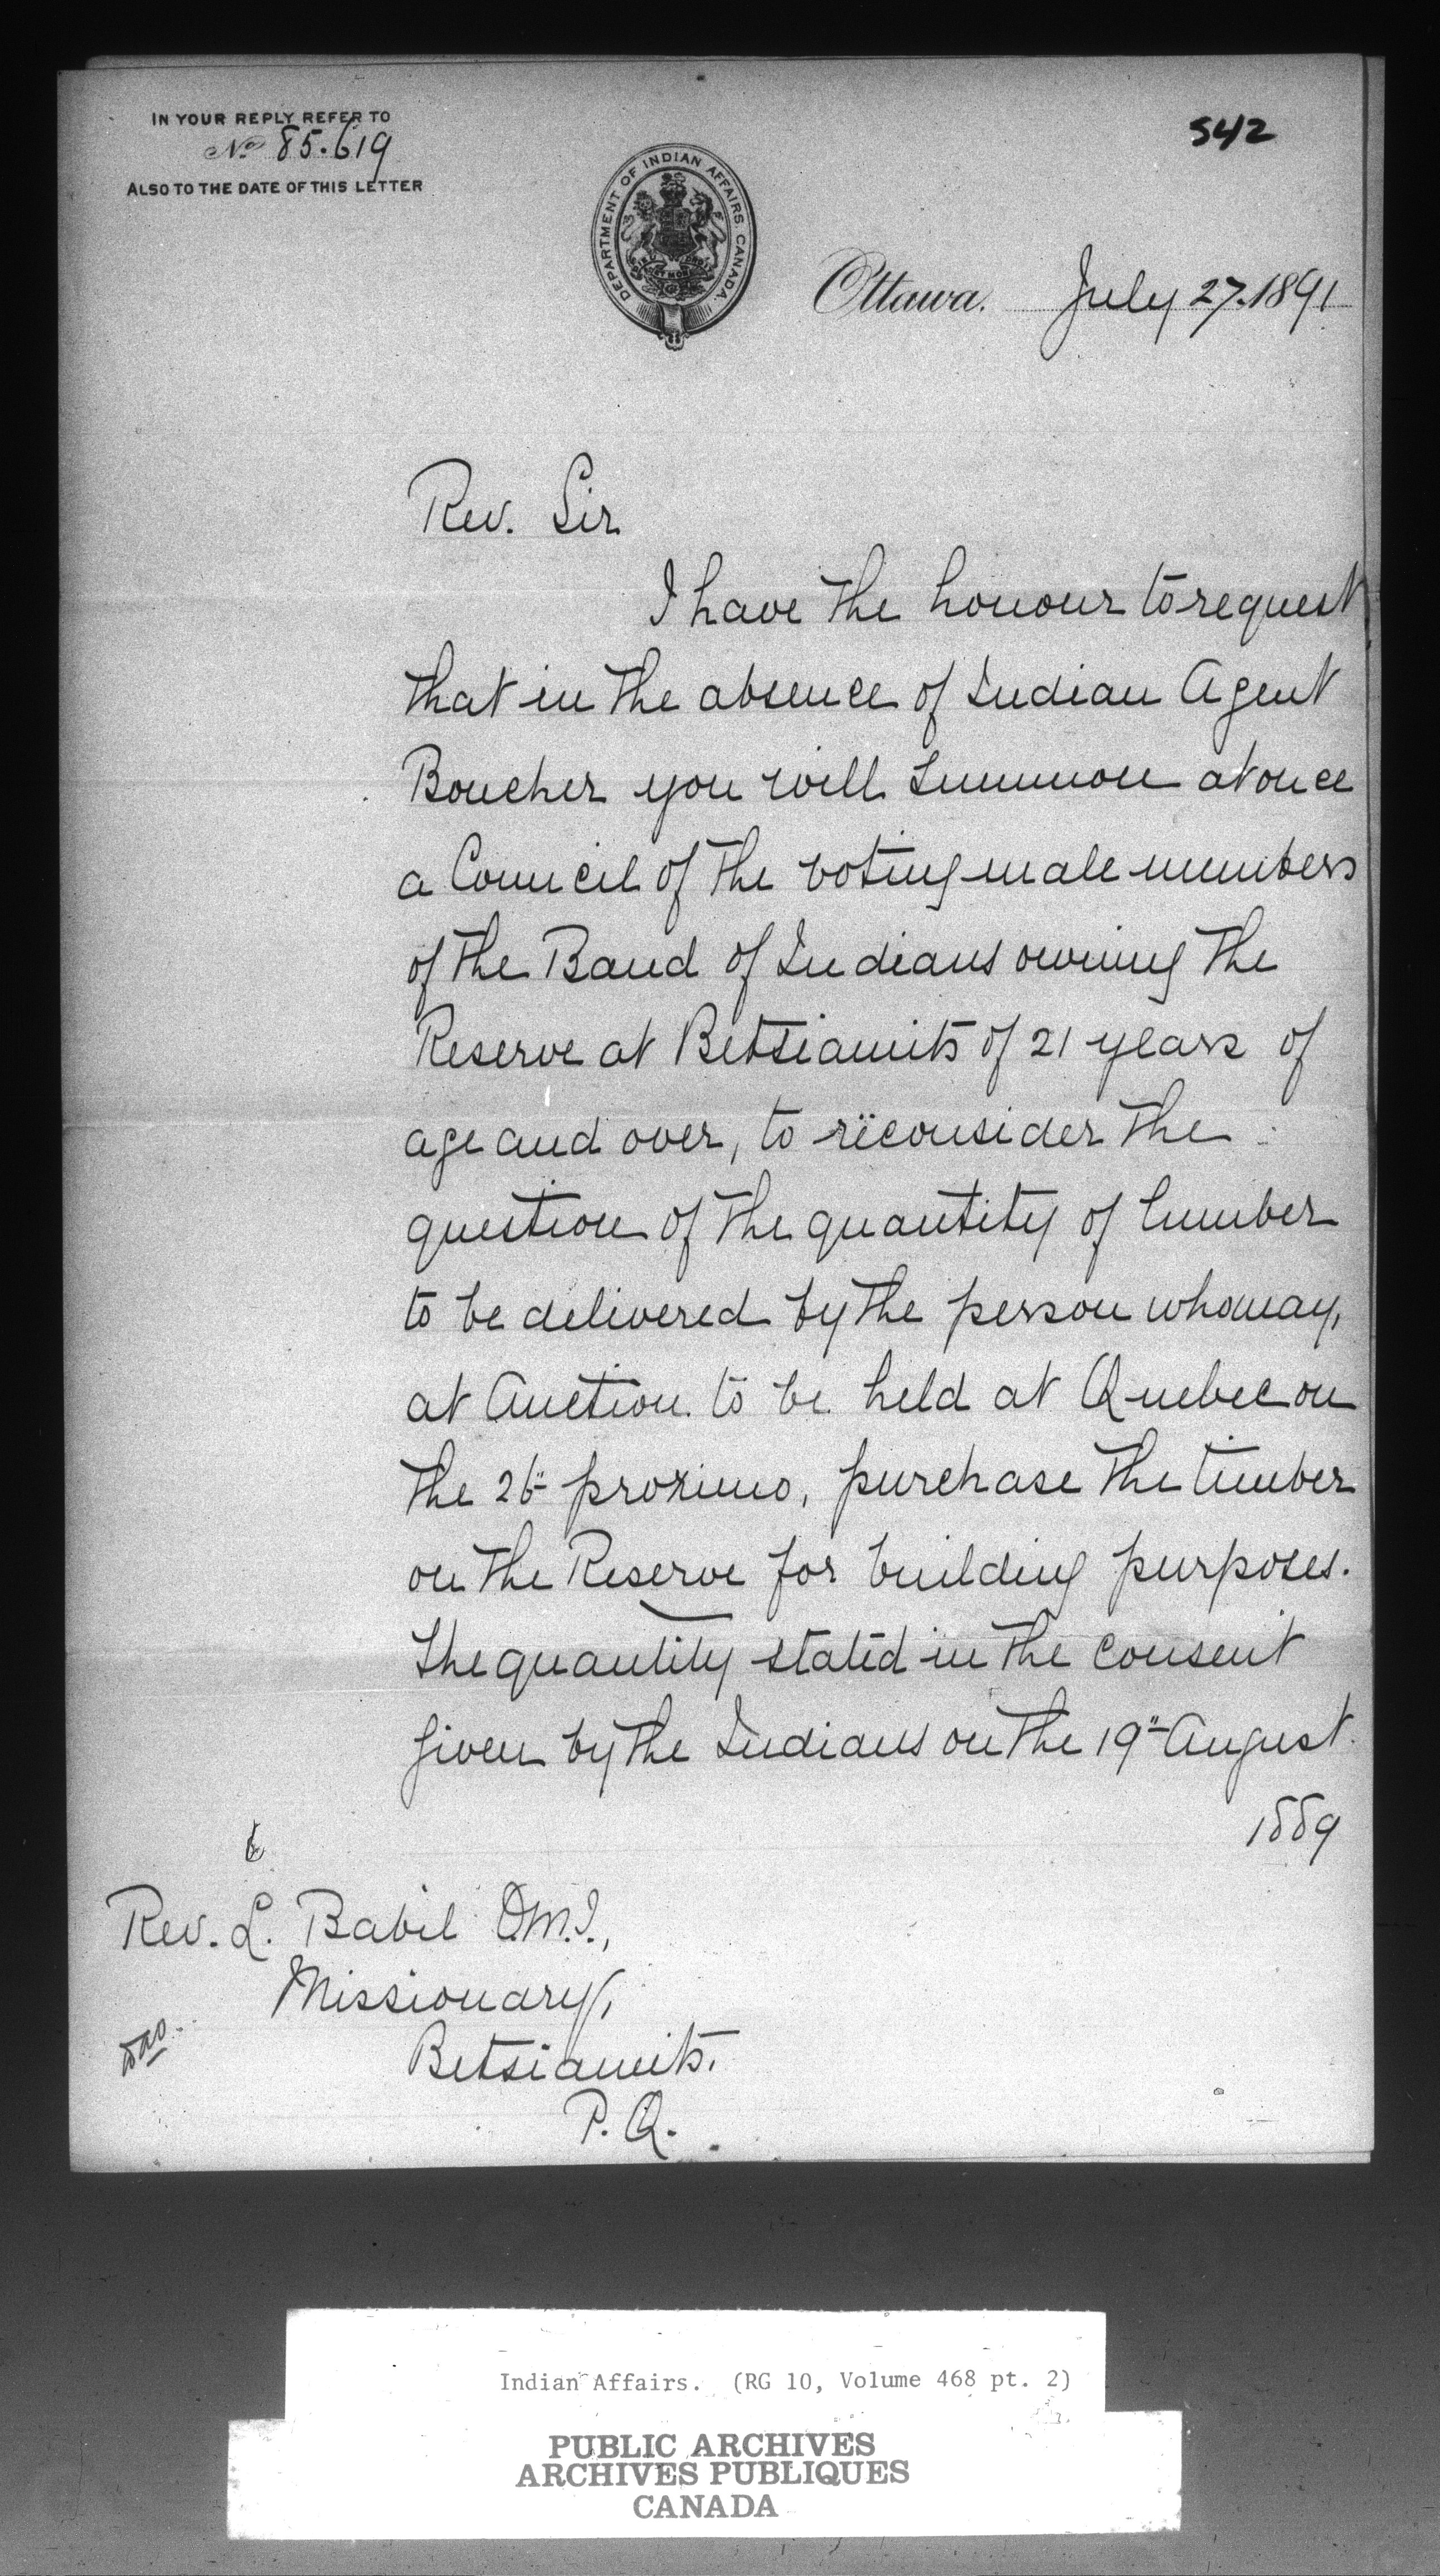 IN YOUR REPLY REFER TO
No 85.619
ALSO TO THE DATE OF THIS LETTER
542
DEPARTMENT OF INDIAN AFFAIRS CANADA.
Ottawa. July 27. 1891
Rev. Sir
I have the honour to request
that in the absence of Indian Agent
Boucher you will summon at once
a Council of the voting male members
of the Band of Indians owning the
Reserve at Betsiamits of 21 years of
age and over, to rëconsider the
question of the quantity of lumber
to be delivered by the person who may,
at Auction to be held at Quebec on
the 26" proximo, purchase the timber
on the Reserve for building purposes.
The quantity stated in the consent
given by the Indians on the 19" August
1889
Rev. L. Babil O.M.I.,
Missionary,
Betsiamits.
P.Q.
Indian Affairs. (RG 10, Volume 468 pt. 2)
PUBLIC ARCHIVES
ARCHIVES PUBLIQUES
CANADA